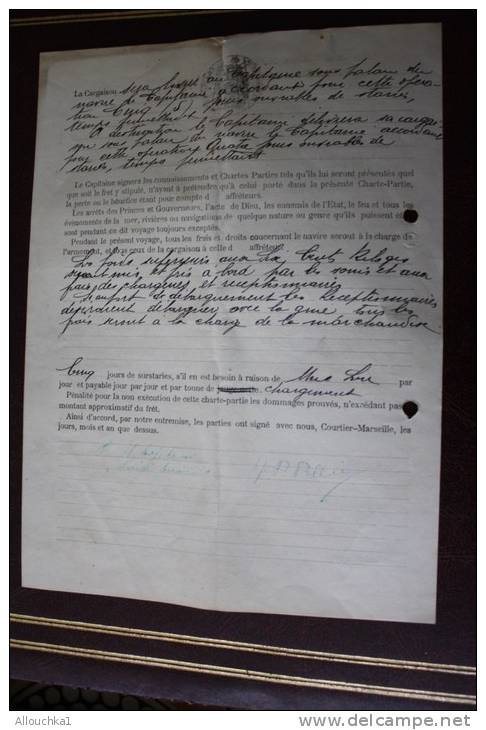 La Cargaison sera logée au Capitaine sous palan du
navire le Capitaine accordant pour cette opéra-
tion Cinq jours ouvrables de staries,
temps permettant
A destination le Capitaine délivrera sa cargai-
son sous palan du navire le Capitaine accordant
pour cette opération Quatre jours ouvrables de
staries, temps permettant
Le Capitaine signera les connaissements et Chartes Parties tels qu'ils lui seront présentés quel
que soit le fret y stipulé, n'ayant à prétendre qu'à celui porté dans la présente Charte-Partie,
la perte ou le bénéfice étant pour compte d affréteurs.
Les arrêts des Princes et Gouverneurs, l'acte de Dieu, les ennemis de l'Etat, le feu et tous les
événements de la mer, rivières ou navigations de quelque nature ou genre qu'ils puissent être
sont pendant ce dit voyage toujours exceptés.
Pendant le présent voyage, tous les frais et droits concernant le navire seront à la charge de
l'armement, et tous ceux de la cargaison à celle d affréteur
Les poids
seront mis, et pris à bord par les soins et aux
frais des chargeurs, et réceptionnaires
le débarquement les Réceptionnaires
débarquer avec la grue tous les
frais seront à la charge de la marchandise
Cinq jours de surstaries, s'il en est besoin à raison de Une Lire par
jour et payable jour par jour et par tonne de chargement
Pénalité pour la non exécution de cette charte-partie les dommages prouvés, n'excédant pas le
montant approximatif du frêt.
Ainsi d'accord, par notre entremise, les parties ont signé avec nous, Courtier-Marseille, les
jours, mois et an que dessus.
Allouchka1
delcampe.net